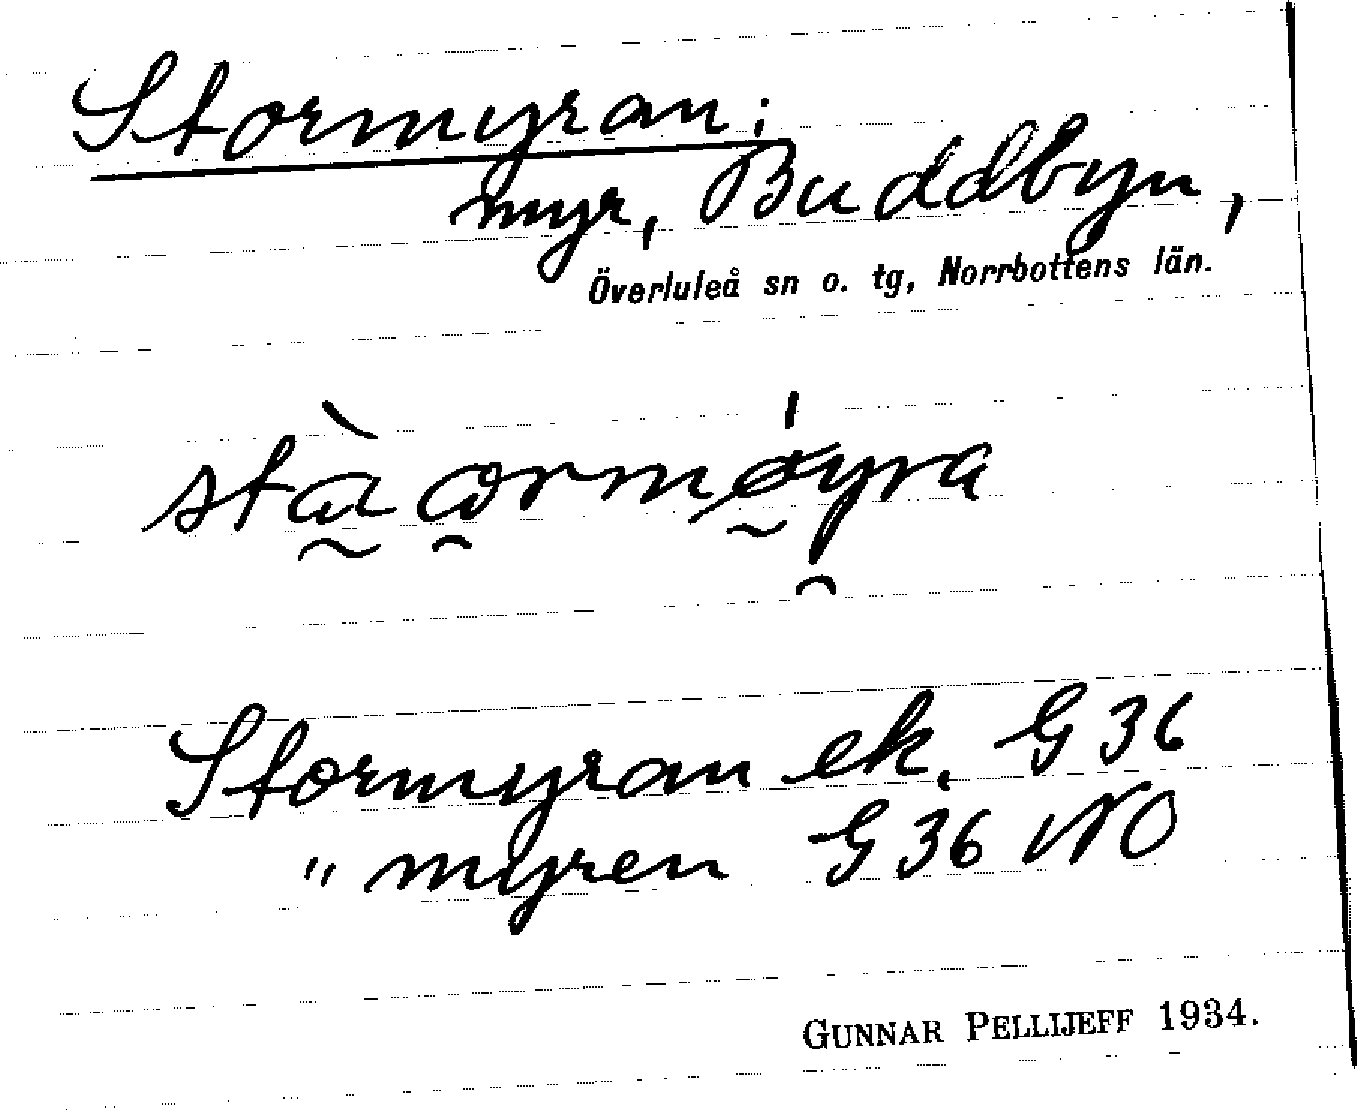 Stormyran:
myr, Buddbyn,
Överluleå sn o. tg, Norrbottens län.
Stormyran ek. G 36
" myren G 36 NO
GUNNAR PELLIJEFF 1934.